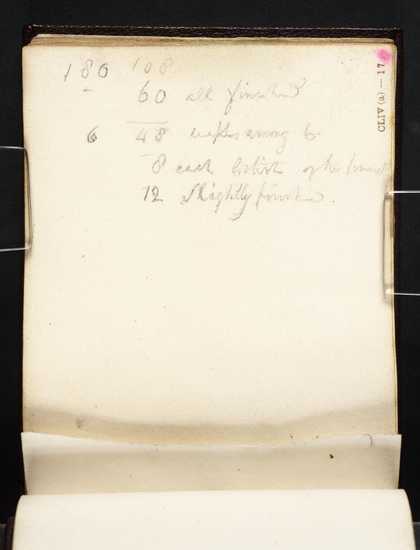 180 108
60 all finished
6 48 among 6
8 each
12 Slightly finished.
CLIV (a) — 17